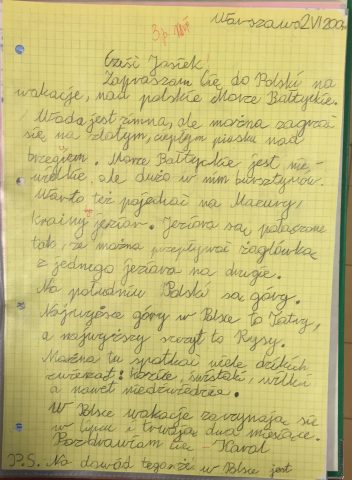 Warszawa 2 VI 200
3p.
Cześć Jasiek!
Zapraszam Cię do Polski na
wakacje, nad polskie Morze Bałtyckie.
Woda jest zimna, ale można zagrzać
się na złotym, ciepłym piasku nad
brzegiem. Morze Bałtyckie jest nie-
wielkie, ale dużo w nim bursztynów.
Warto też pojechać na Mazury,
Krainy jezior. Jeziora są połączone
tak, że można przepływać żaglówką
z jednego jeziora na drugie.
Na południu Polski są góry.
Najwyższe góry w Polsce to Tatry,
a najwyższy szczyt to Rysy.
Można tu spotkać wiele dzikich
zwierząt: kozice, świstaki, wilki
a nawet niedźwiedzie.
W Polsce wakacje zaczynają się
w lipcu i trwają dwa miesiące.
Pozdrawiam Cię - Karol
P.S. Na dowód tego, iż w Polsce jest